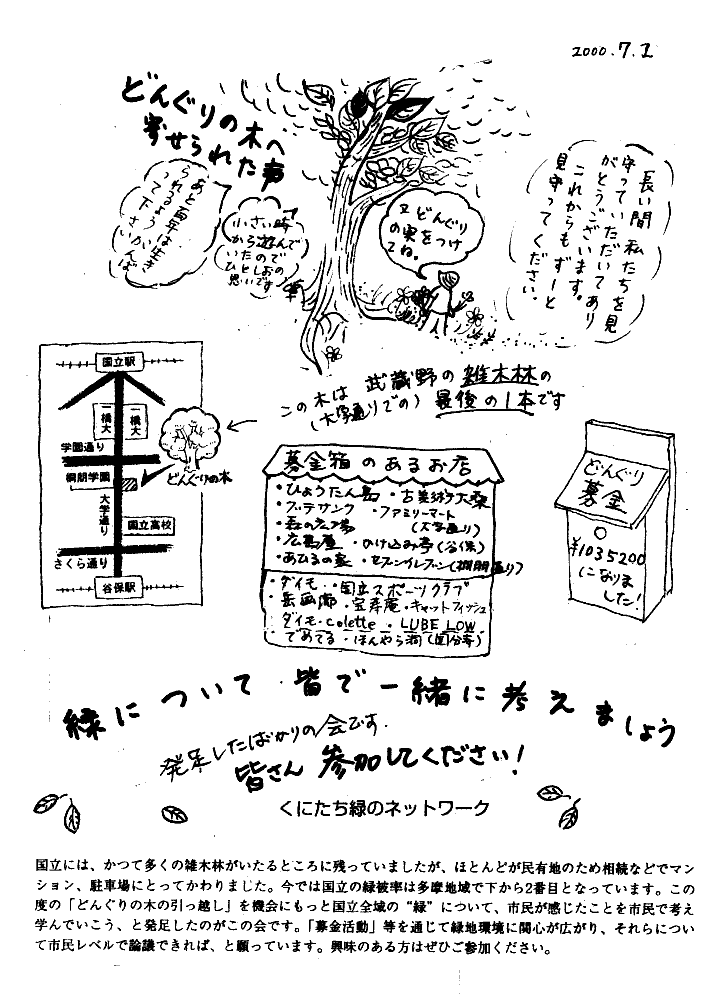 2000.7.1
どんぐりの木へ
寄せられた声
あと百年は生き
られるよう がんば
って下さい
小さい時
から遊んで
いたので
ひとしおの
思いです
又どんぐり
の実をつけ
てね。
長い間 私たちを見
守っていただいてあり
がとうございます。
これからもずーと
見守ってください。
国立駅
一橋大
一橋大
学園通り
桐朋学園
大学通り
国立高校
さくら通り
谷保駅
どんぐりの木
この木は 武蔵野の雑木林の
(大学通りでの) 最後の1本です
募金箱のあるお店
・ひょうたん島 ・古美術大桑
・ブテサンク ・ファミリーマート
(大学通り)
・森の広場
・広島屋 ・かけ込み亭(谷保)
・あひるの家 ・セブンイレブン(桐朋通り)
・ダイモ・・国立スポーツクラブ
・岳画廊 ・宝寿庵・キャットフィッシュ
ダイモ・Colette ・LUBE LOW
であてる・ほんやら洞(国分寺)
どんぐり
募金
¥1035200
になりま
した!
緑について 皆で一緒に考えましょう
発足したばかりの会です.
皆さん 参加してください!
くにたち緑のネットワーク
国立には、かつて多くの雑木林がいたるところに残っていましたが、ほとんどが民有地のため相続などでマン
ション、駐車場にとってかわりました。今では国立の緑被率は多摩地域で下から2番目となっています。この
度の「どんぐりの木の引っ越し」を機会にもっと国立全域の“緑”について、市民が感じたことを市民で考え
学んでいこう、と発足したのがこの会です。「募金活動」等を通じて緑地環境に関心が広がり、それらについ
て市民レベルで論議できれば、と願っています。興味のある方はぜひご参加ください。